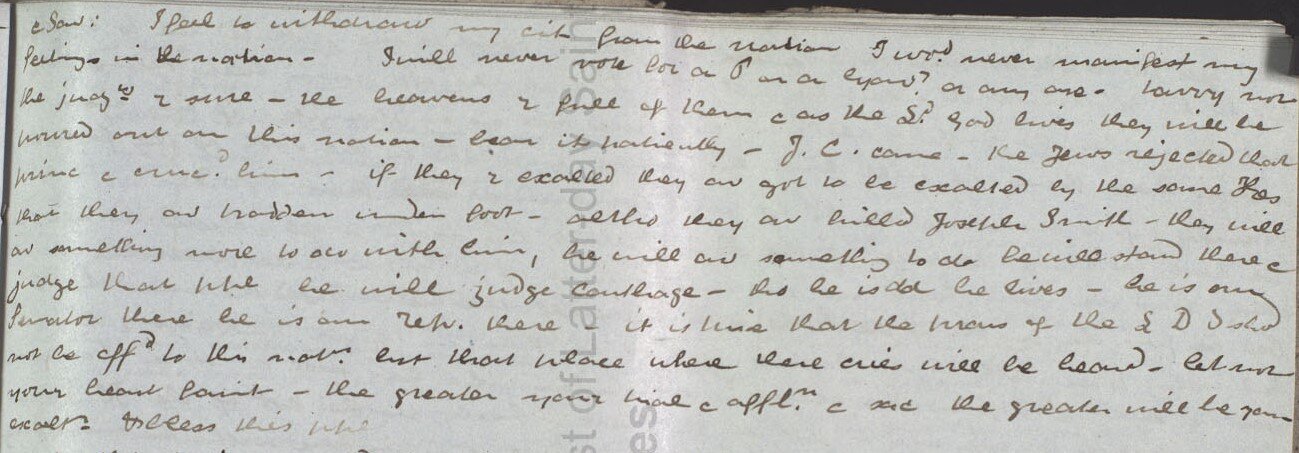 & Saw: I feel to withdraw my cit from the nation I wod. never manifest my
feelings in the nation - I will never vote for a P or a Govr. or any one - tarry not
the judgts r sure - the heavens r full of them & as the Ld. God lives they will be
poured out on this nation - bear it patiently - J. C. came - the Jews rejected that
princ & cruc.d him - if they r exalted they av got to be exalted by the same
that they av trodden under foot - altho they av killed Joseph Smith - they will
av something more to do with him, he will av something to do he will stand there &
judge that ppl he will judge Carthage - tho he is dd he lives - he is our
Senator there he is our Rep. there - it is time that the prars of the L D S shod
not be offd to this natn. but that place where there cries will be heard - let not
your heart faint - the greater your trial & afflns. & sac the greater will be your
exaltn. bless this ppl
st of Latter-day Saint
es